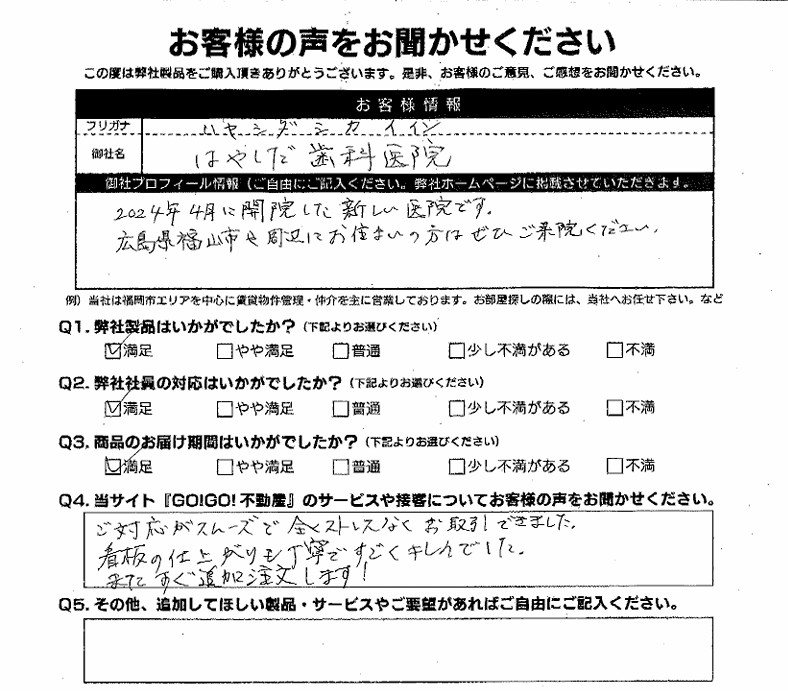 お客様の声をお聞かせください
この度は弊社製品をご購入頂きありがとうございます。是非、お客様のご意見、ご感想をお聞かせください。
お客様情報
フリガナ ハヤシダシカイイン
御社名 はやしだ歯科医院
御社プロフィール情報（ご自由にご記入ください。弊社ホームページに掲載させていただきます。
2024年4月に開院した新しい医院です。
広島県福山市や周辺にお住まいの方はぜひご来院ください。
例）当社は福岡市エリアを中心に賃貸物件管理・仲介を主に営業しております。お部屋探しの際には、当社へお任せ下さい。など
Q1. 弊社製品はいかがでしたか？（下記よりお選びください）
☑満足 □やや満足 □普通 □少し不満がある □不満
Q2. 弊社社員の対応はいかがでしたか？（下記よりお選びください）
☑満足 □やや満足 □普通 □少し不満がある □不満
Q3. 商品のお届け期間はいかがでしたか？（下記よりお選びください）
☑満足 □やや満足 □普通 □少し不満がある □不満
Q4. 当サイト『GO!GO! 不動屋』のサービスや接客についてお客様の声をお聞かせください。
ご対応がスムーズで全くストレスなくお取引できました。
看板の仕上がりも丁寧ですごくキレイでした。
またすぐ追加注文します！
Q5. その他、追加してほしい製品・サービスやご要望があればご自由にご記入ください。